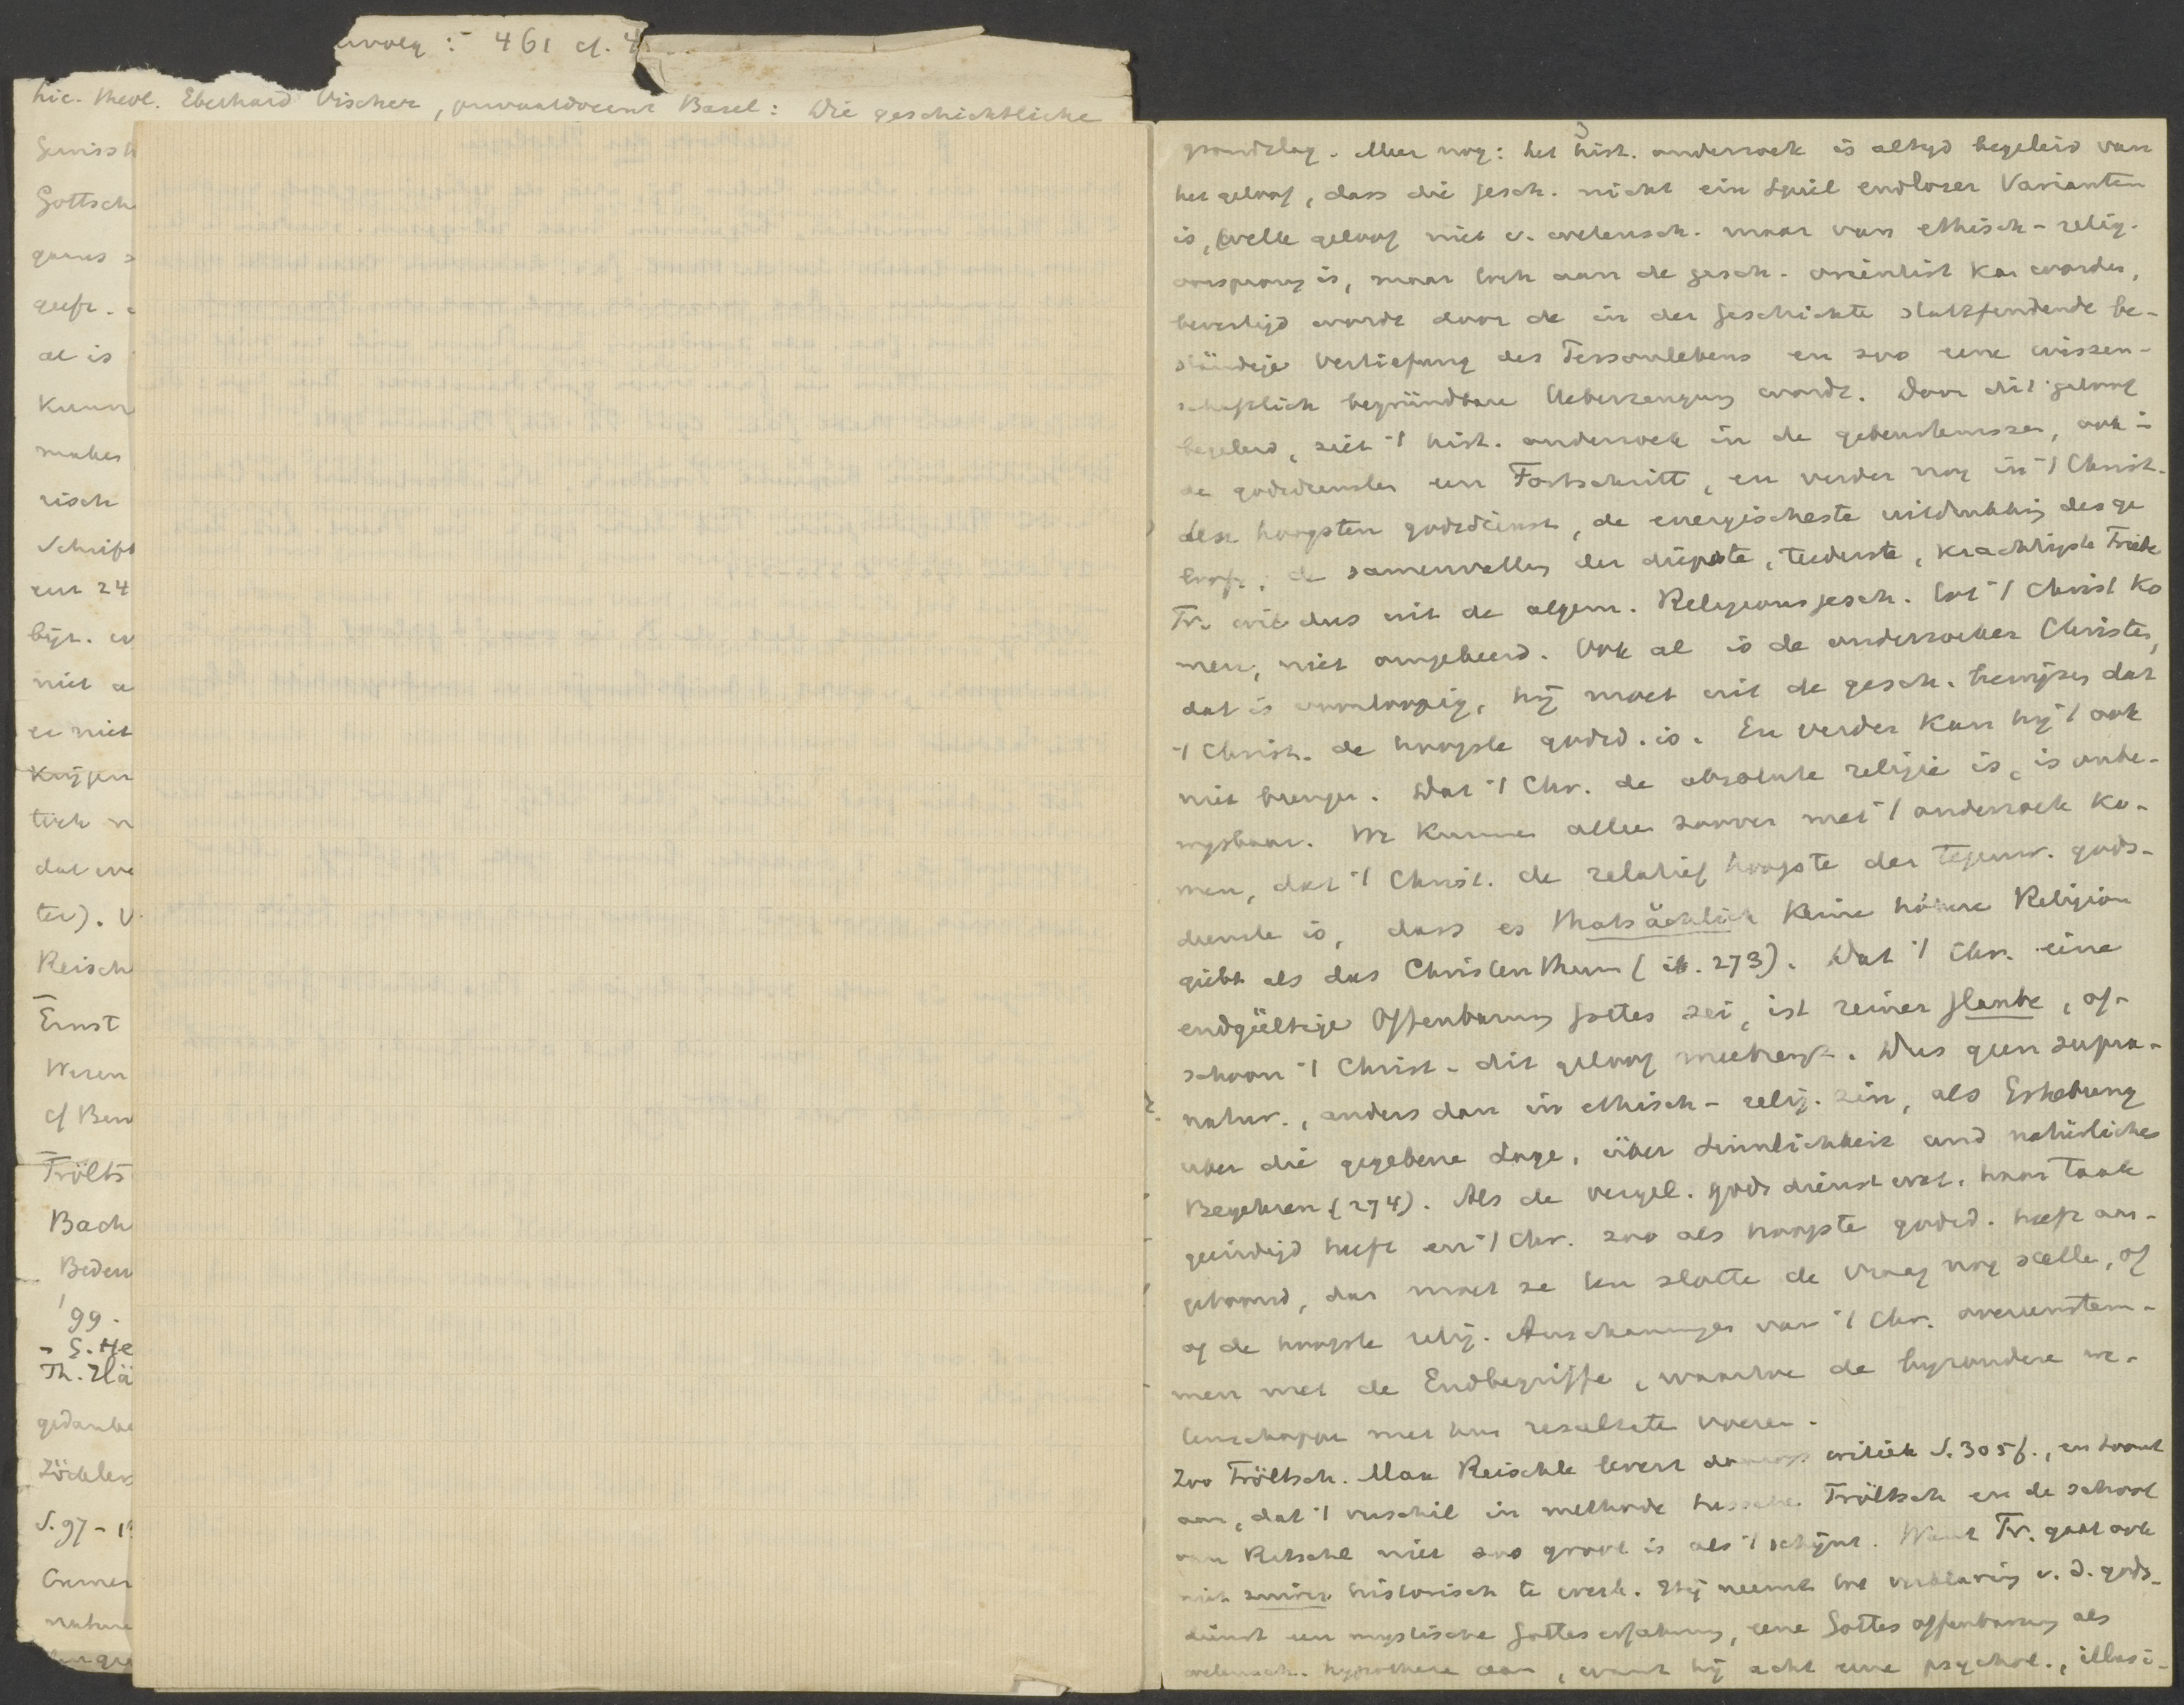 461 cf. 4
Lic. theol. Eberhard Vischer, privaatdocent Basel: Die geschichtliche
Gewissh
Gottsch
geeft.
al is
Kunn
makes
risch
Schrift
een 24
byz.
niet a
er niet
Krijgen
tisch
dat we
ter). V
Reisch
Ernst
Weren
cf Ben
Trölts
Bach
Beden
'99.
- G. He
Th. Hä
gedanke
Zöckler
S. 97 -
Cremer
3
grondslag. Meer nog: het hist. onderzoek is altyd begeleid van
het geloof, dass die Gesch. nicht ein Spiel endloser Varianten
is, welk geloof niet v. wetensch. maar van ethisch-relig.
oorsprong is, maar toch aan de gesch. orientirt kan worden,
bevestigd wordt door de in der Geschichte stattfindende be-
ständige Vertiefung des Personlebens en zoo eene wissen-
schaftlich begründbare Ueberzeugung wordt. Door dit geloof
begeleid, ziet 't hist. onderzoek in de gebeurtenissen, ook i
de godsdiensten een Fortschritt, en verder nog in 't Christ.
den hoogsten godsdienst, de energischeste uitdrukking des ge
loofs, de samenvalling der diepste, teederste, krachtigste Triebe
Tr. wil dus uit de algem. Religionsgesch. tot 't Christ ko
men, niet omgekeerd. Ook al is de onderzoeker Christen,
dat is voorloopig, hij moet uit de gesch. bewijzen dat
't Christ. de hoogste godsd. is. En verder kan hij 't ook
niet brengen. Dat 't Chr. de absolute religie is, is onbe-
wysbaar. We kunnen alleen zoover met 't onderzoek ko-
men, dat 't Christ. de relatief hoogste der tegenw. gods-
diensten is, dass es thatsächlich keine höhere Religion
giebt als das Christenthum (ib. 273). Dat 't Chr. eine
endgültige Offenbarung Gottes sei, ist reiner Glaube, of-
schoon 't Christ. dit geloof meebrengt. Dus geen supra-
natur., anders dan in ethisch-relig. zin, als Erhebung
über die gegebene Lage, über Sinnlichkeit und natürliches
Begehren (274). Als de vergel. godsdienstwet. haar taak
geëindigd heeft en 't Chr. zoo als hoogste godsd. heeft aan-
getoond, dan moet ze ten slotte de vraag nog stellen, of
of de hoogste relig. Anschauungen van 't Chr. overeenstem-
men met de Endbegriffe, waartoe de byzondere we-
tenschappen met hun resultaten voeren.
Zoo Tröltsch. Max Reischle levert daarop critiek S. 305f., en toont
aan, dat 't verschil in methode tusschen Tröltsch en de school
van Ritschl niet zoo groot is als 't schijnt. Want Tr. gaat ook
niet zuiver historisch te werk. Hij neemt tot verklaring v. d. gods-
dienst een mystische Gotteserfahrung, eene Gottesoffenbarung als
wetensch. hypothese aan, want hij acht eene psychol., illusi-